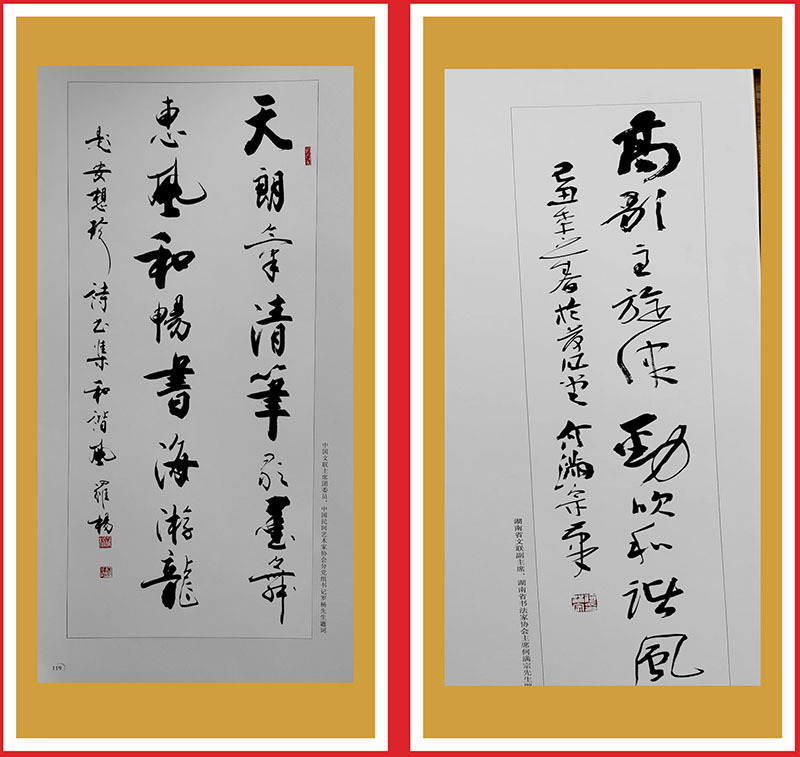 天朗气清笔歌墨舞
惠风和畅书海游龙
题安想珍诗书集和谐风 罗杨
中国文联主席团委员、中国民间艺术家协会分党组书记罗杨先生题词
119
高歌主旋律 劲吹和谐风
己丑年之春于 何满宗书
湖南省文联副主席、湖南省书法家协会主席何满宗先生题